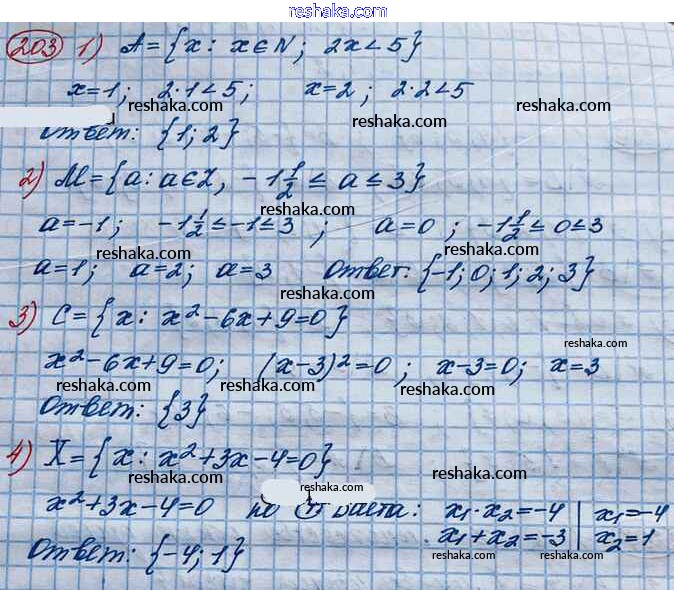 reshaka.com
203 1) A={x: x∈N; 2x<5}
x=1; 2·1<5; x=2; 2·2<5
reshaka.com reshaka.com reshaka.com
Ответ: {1; 2}
reshaka.com
2) M={a: a∈Z, -1 1/2 ≤ a ≤ 3}
reshaka.com
a=-1; -1 1/2 ≤ -1 ≤ 3; a=0; -1 1/2 ≤ 0 ≤ 3
reshaka.com reshaka.com
a=1; a=2; a=3 Ответ: {-1; 0; 1; 2; 3}
reshaka.com
3) C={x: x²-6x+9=0}
x²-6x+9=0; (x-3)²=0; x-3=0; x=3
reshaka.com reshaka.com reshaka.com
Ответ: {3}
4) X={x: x²+3x-4=0}
reshaka.com reshaka.com
reshaka.com
x²+3x-4=0 по т Виета: x₁·x₂=-4 | x₁=-4
x₁+x₂=-3 | x₂=1
Ответ: {-4; 1}
reshaka.com reshaka.com
reshaka.com